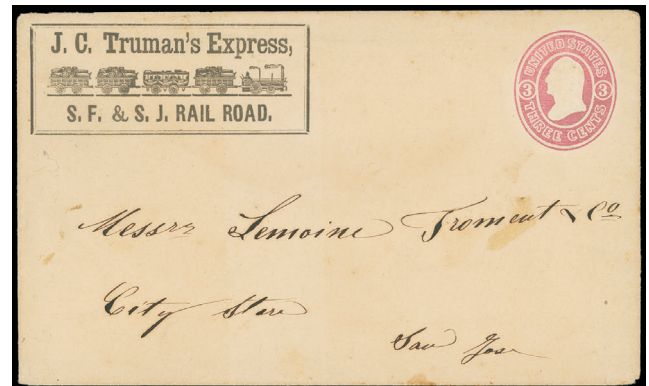 J. C. Truman's Express,
S. F. & S. J. RAIL ROAD.
UNITED STATES
3 3
THREE CENTS
Messrs Lemoine Froment & Co
City Store
San Jose